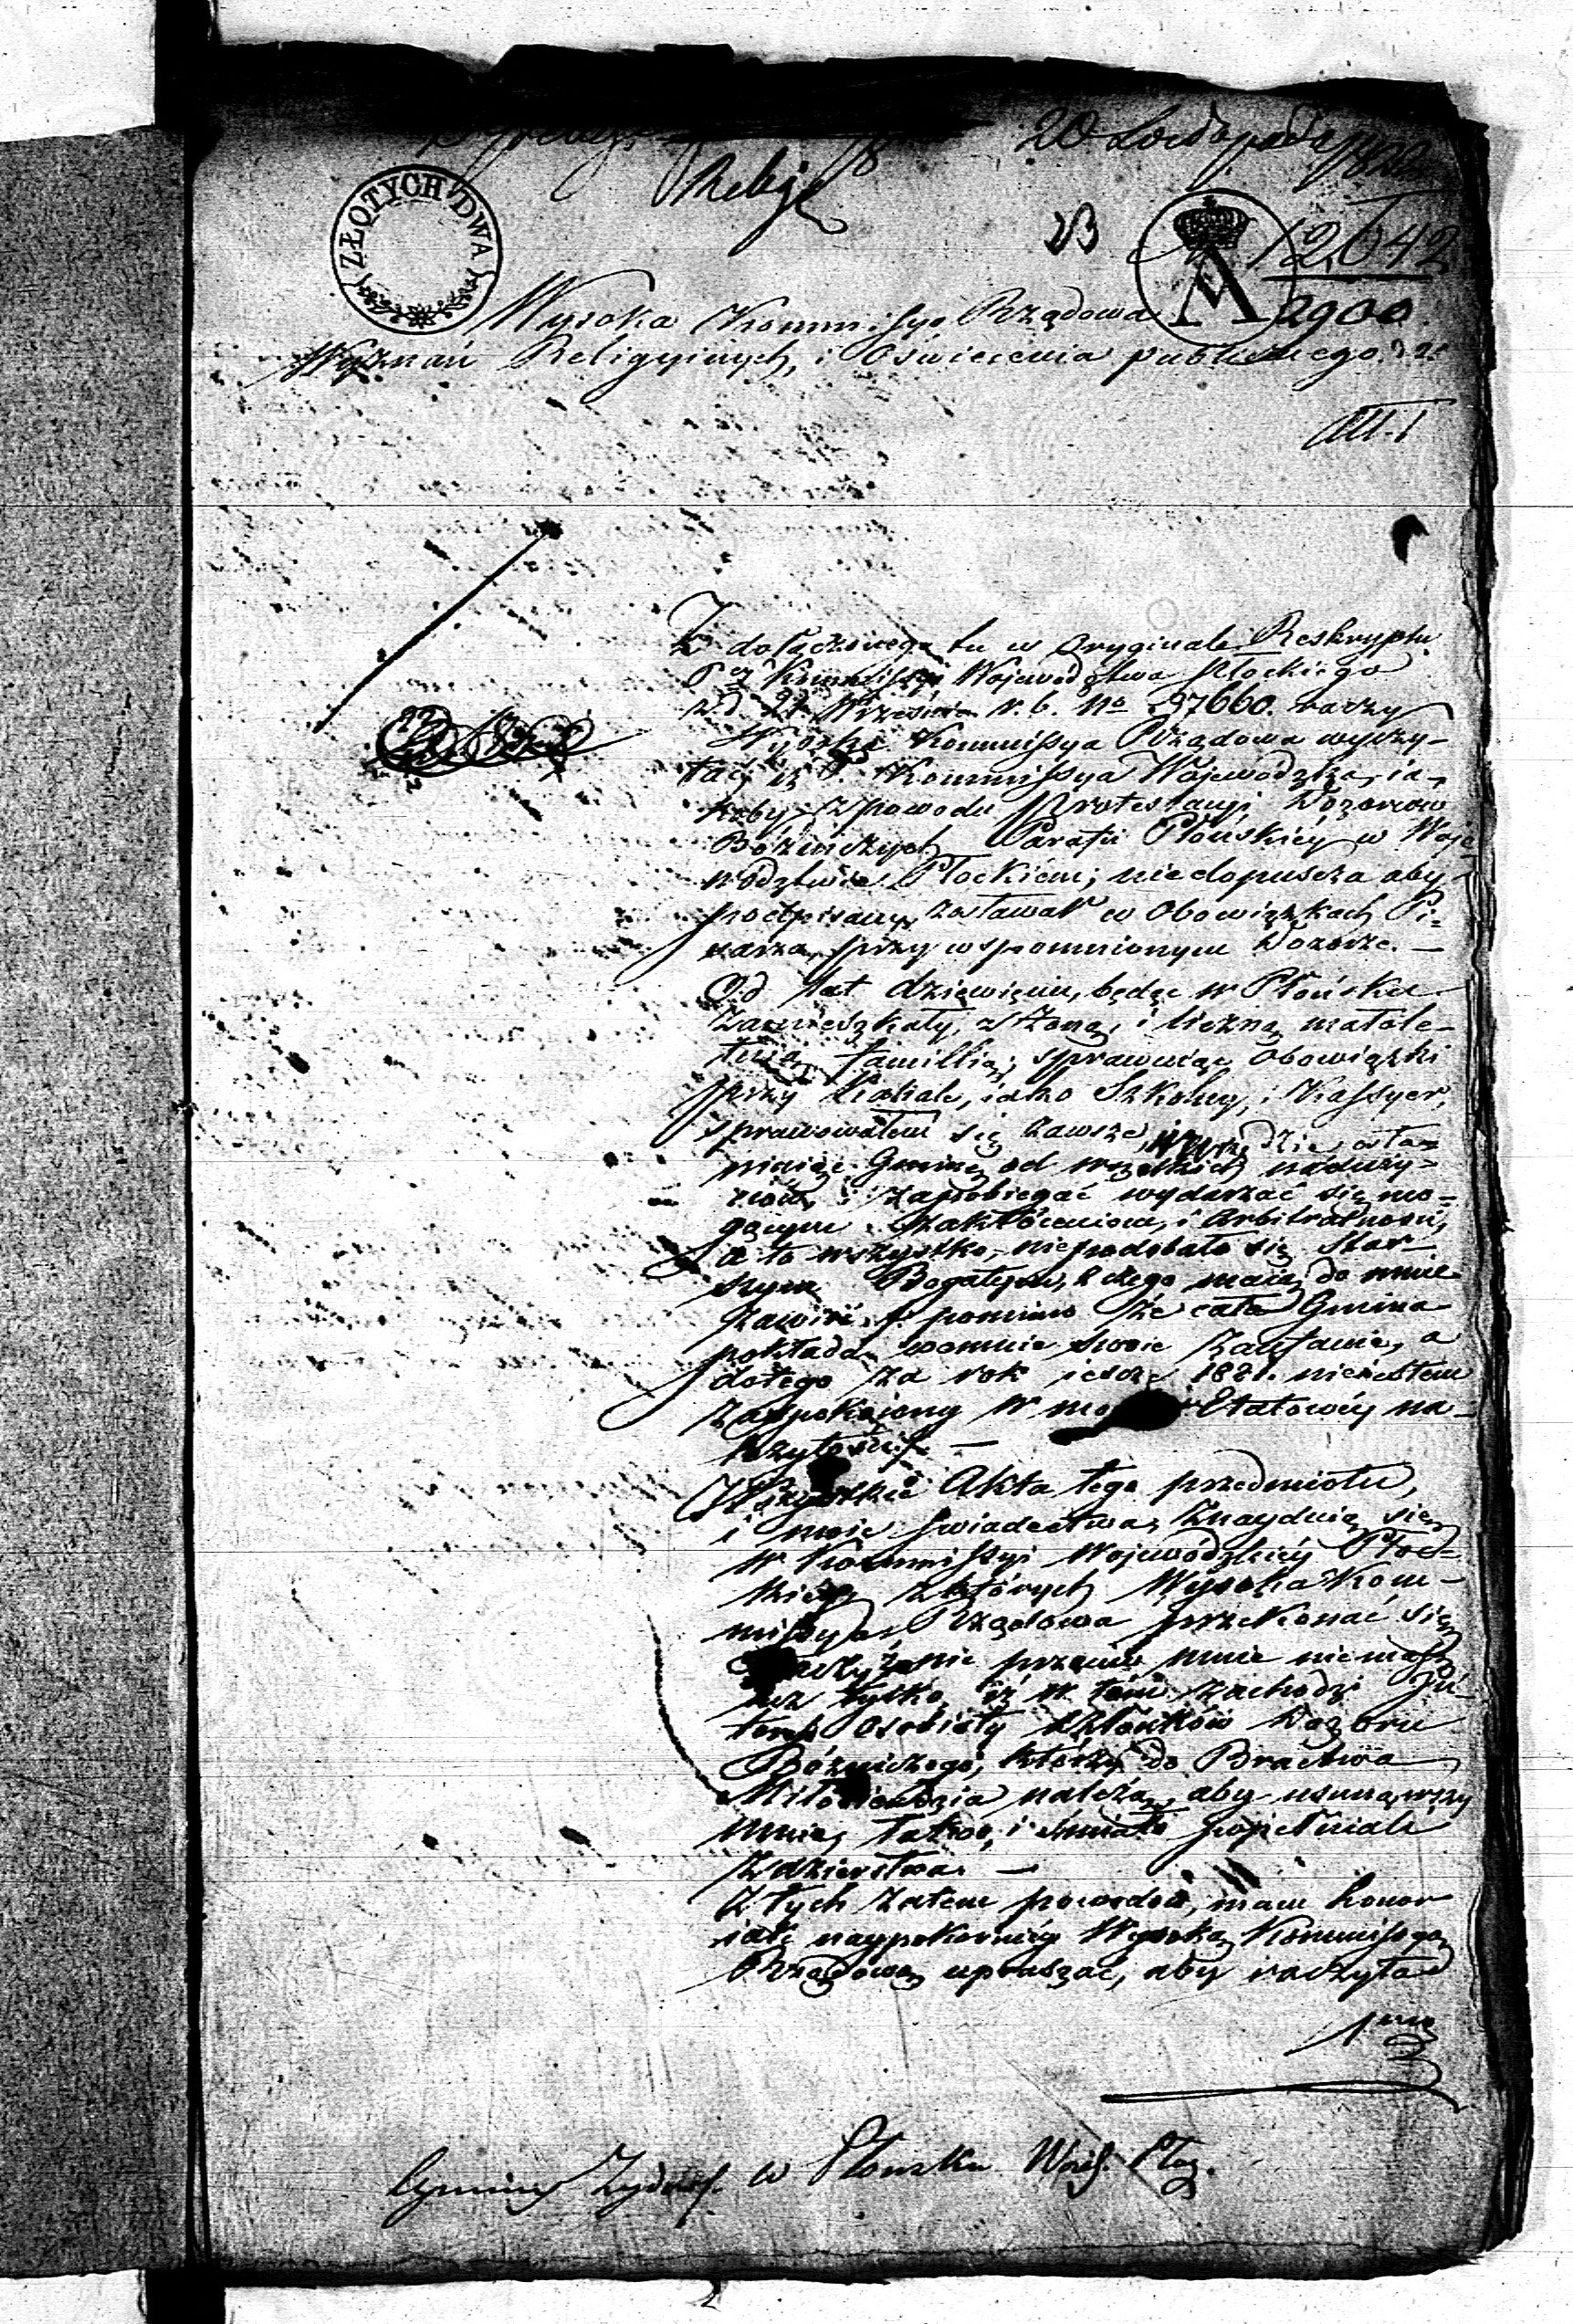 20 Listopada 1822
Relig
ZŁOTYCH DWA
23
12642
2900
Wysoka Kommissyo Rządowa
Wyznań Religyinych, i Oświecenia publicznego.
Z dołączonego tu w Oryginale Reskryptu
Kommissyi Województwa Płockiego
Września r. b. No 37660. raczy
Wysoka Kommissya Rządowa wyczy-
tać, iż P. Kommissya Wojewódzka, ia-
koby z powodu Protestacyi Dozorców
Bóżniczych Parafii Płońskiéy w Woje
wództwie Płockiém; niedopuscza aby
podpisany zostawał w Obowiązkach Pi-
sarza, przy wspomnionym Dozorze. —
Od lat dziewięciu, będąc w Płońsku
zamieszkały, z Żoną, i liczną małole-
tnią familią; sprawuiąc obowiązki
przy Kahale, iako Szkolny, i Kassyer,
sprawowałem się zawsze
niaiąc Gminę od wszelkich naduży-
ciów, i zapobiegać wydarzać się mo-
gącym zakłóceniom, i Arbitralności,
a to wszystko, niepodobało się Star-
szym Bogatym, z czego maią do mnie
zawiść, pomimo że cała Gmina
pokłada wemnie swoie zaufanie, a
dotego za rok ieszcze 1821. nieiestem
zaspokoiony w Etatowéy na-
leżytości. —
Wszystkie Akta tego przedmiotu,
i moie świadectwa, znayduią się
w Kommissyi Wojewódzkiéy Płoc-
kiéy z których Wysoka Kom-
missya Rządowa przekonać się
raczy, że nic przeciw mnie niemasz
tylko, iż w tém zachodzi In-
teres Osobisty członków Dozoru
Bóżniczego, którzy do Bractwa
Miłosierdzia należą, aby usunąwszy
mnie, łatwo, i śmiało popełniali
zdzierstwa. —
Z tych zatem powodów, mam honor
iak naypokorniéy Wysoką Kommissyą
Rządową upraszać, aby raczyła
Gminy Żydows. w Płońsku Woj. Płoc.